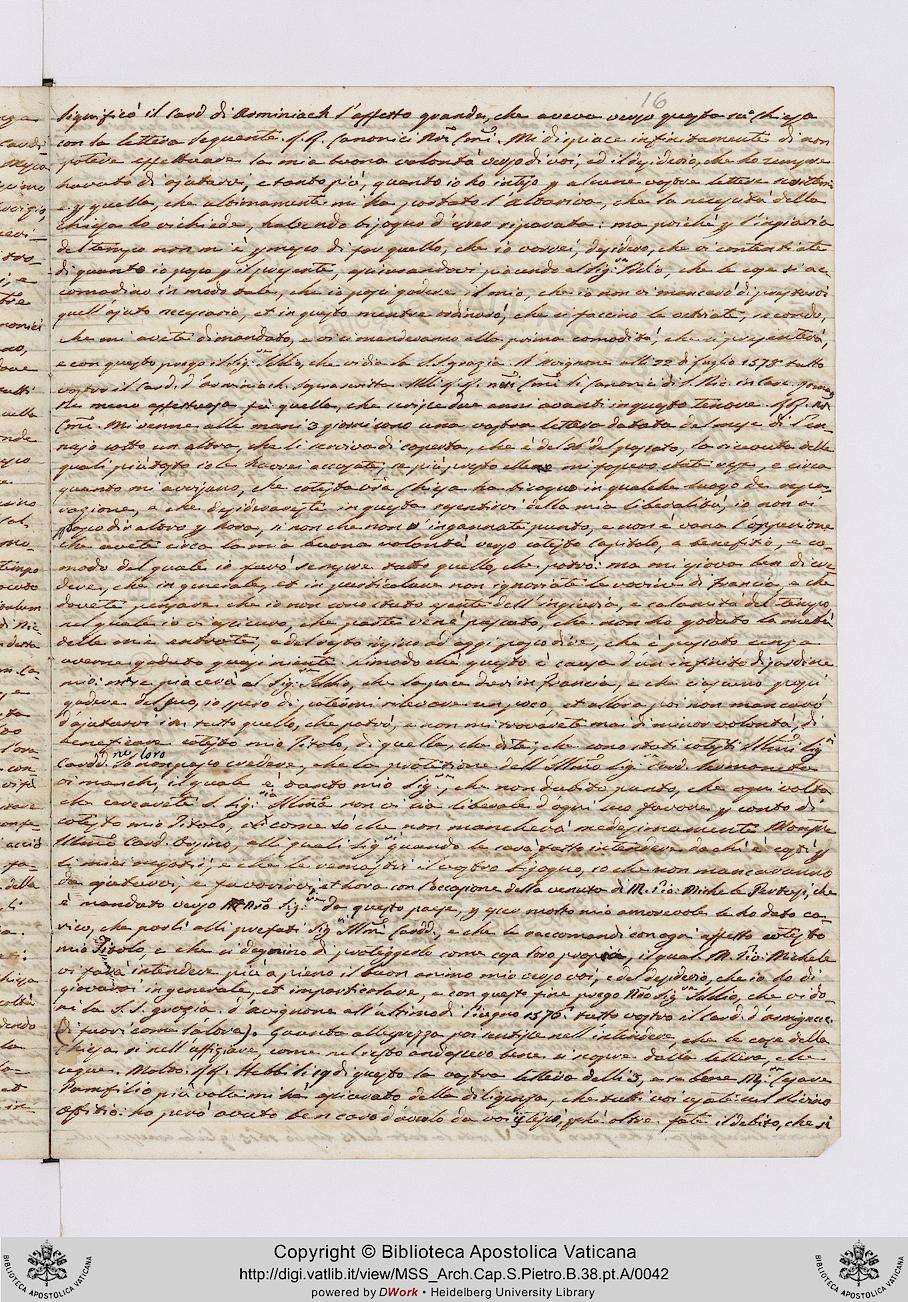 16
significò il Card di Arminiach l'affetto grande, che aveva verso questa sua Chiesa
con la lettera seguente Canonici Mi dispiace infinitamente di non
potere effettuare la mia buona volontà verso di voi, ed il desiderio, che ho sempre
havuto di ajutarvi, e tanto più, quanto io ho inteso p alcune vostre lettere
e p quella, che ultimamente mi ha portato l' che la necessità della
Chiesa lo richiede, havendo bisogno d'esser riparata: ma poichè p l'ingiuria
de tempo non mi è p messo di far quello, che io vorrei, desidero, che vi contentiate
di quanto io posso p il presente, piacendo al Sig. Iddio, che le cose s'ac
comodino in modo tale, che io possi godere il mio, che io non vi mancarò di prestarvi
quell'ajuto necessario, et in questo mentre ordinarò, che si faccino le vetriate, secondo,
che mi avete dimandato, e vi si manderanno alla prima comodità, che si presentarà,
e con questo prego il Sig. Iddio, che vi dia la S.S. grazia. D'Avignone nelli 22 di luglio 1573 tutto
vostro il Card. d'Arminiach. li Canonici di S. Nic. in Carc.
Ne meno affettuosa fù quella, che scrisse due anni avanti in questo tenore
Mi venne alle mani 3 giorni sono una vostra lettera datata del mese di Gen
najo sotto un altra, che li serviva di coperta, che è del del passato, la ricevuta delle
quali più tosto io le haverei accusata, se più presto elleno mi fossero state rese, e circa
quanto mi avvisano, che cotesta Chiesa ha bisogno in qualche luogo de ripa
razione, e che desiderareste in questo sentirvi della mia liberalità, io non vi
posso dir altro p hora, si non che non v'ingannate punto, e non è vana l'oppinione
che avete circa la mia buona volontà verso cotesto Capitolo, a benefitio, e co
modo del quale io farò sempre tutto quello, che potrò: ma mi giova ben di cre
dere, che in generale, et in particolare non ignoriate le rovine di Francia, e che
dovete pensare che io non sono stato esente dell'ingiuria, e calamità del tempo,
nel quale io vi assicuro, che parte ne è passato, che non ho goduto la metà
delle mie entrate, e del resto sino ad oggi posso dire, che è passato senza
averne goduto quasi niente. di modo che questo è causa d'un infinito disordine
mio: mà se piacerà al Sig. Iddio, che la pace duri in Francia, e che ciascuno possi
godere del suo, io spero di potermi rilevare un poco, et allora poi non mancarò
d'ajutarvi in tutto quello, che potrò, e non mi trovarete mai di minor volontà, di
beneficare cotesto mio Titolo, di quella, che dite, che sono stati cotesti Illmi Sig.
Cardd. ne' loro Io non posso credere, che la protetione dell'Illmo Sig. Card.
vi manchi, il quale è tanto mio Sig., che non dubito punto, che ogni volta
che cercarete S. Sig. Illma non vi sia liberale d'ogni suo favore p conto di
cotesto mio Titolo, si come sò che non mancherà medesimamente Monsre
Illmo Card. Orsino, alli quali Sig. quando le sarà fatto intendere da chi è costì p
li miei negotii, e che le remostri il vostro bisogno, io che non mancaranno
de ajutarvi, e favorirvi, et hora con l'occasione della venuta di M. Gio: Michele che
è mandato verso da questo paese, p esser molto mio amorevole le ho dato ca
rico, che parli alli prefati Sig. Illmi Cardd., e che le raccomandi con ogni affetto cotesto
mio Titolo, e che si degnino di proteggerlo come cosa loro propria, il qual M. Gio: Michele
vi farà intendere più a pieno il buon animo mio verso voi, e del desiderio, che io ho di
giovarvi in generale, et in particolare, e con questo fine prego Nro Sig. Iddio, che vi do
ni la S.S. grazia. d'Avignone all'ultimo di Giugno 1570: tutto vostro il Card. d'Armignac.
(di fuori come la loro). Quanta allegrezza poi sentisse nell'intendere, che le cose della
Chiesa si nell'uffiziare, come nel resto andassero bene si scopre dalla lettera, che
segue. Molto Hebbi li 19 di questo la vostra lettera delli 3, e se bene Mr. Cesare
Pamfilio più volte mi hà avisato della diligenza, che tutti voi usate nel divino
offitio: ho però avuto ben caro d'averlo da voi istessi, pchè oltre fate il debito, che si
Copyright © Biblioteca Apostolica Vaticana
http://digi.vatlib.it/view/MSS_Arch.Cap.S.Pietro.B.38.pt.A/0042
powered by DWork • Heidelberg University Library
BIBLIOTECA APOSTOLICA VATICANA
BIBLIOTECA APOSTOLICA VATICANA